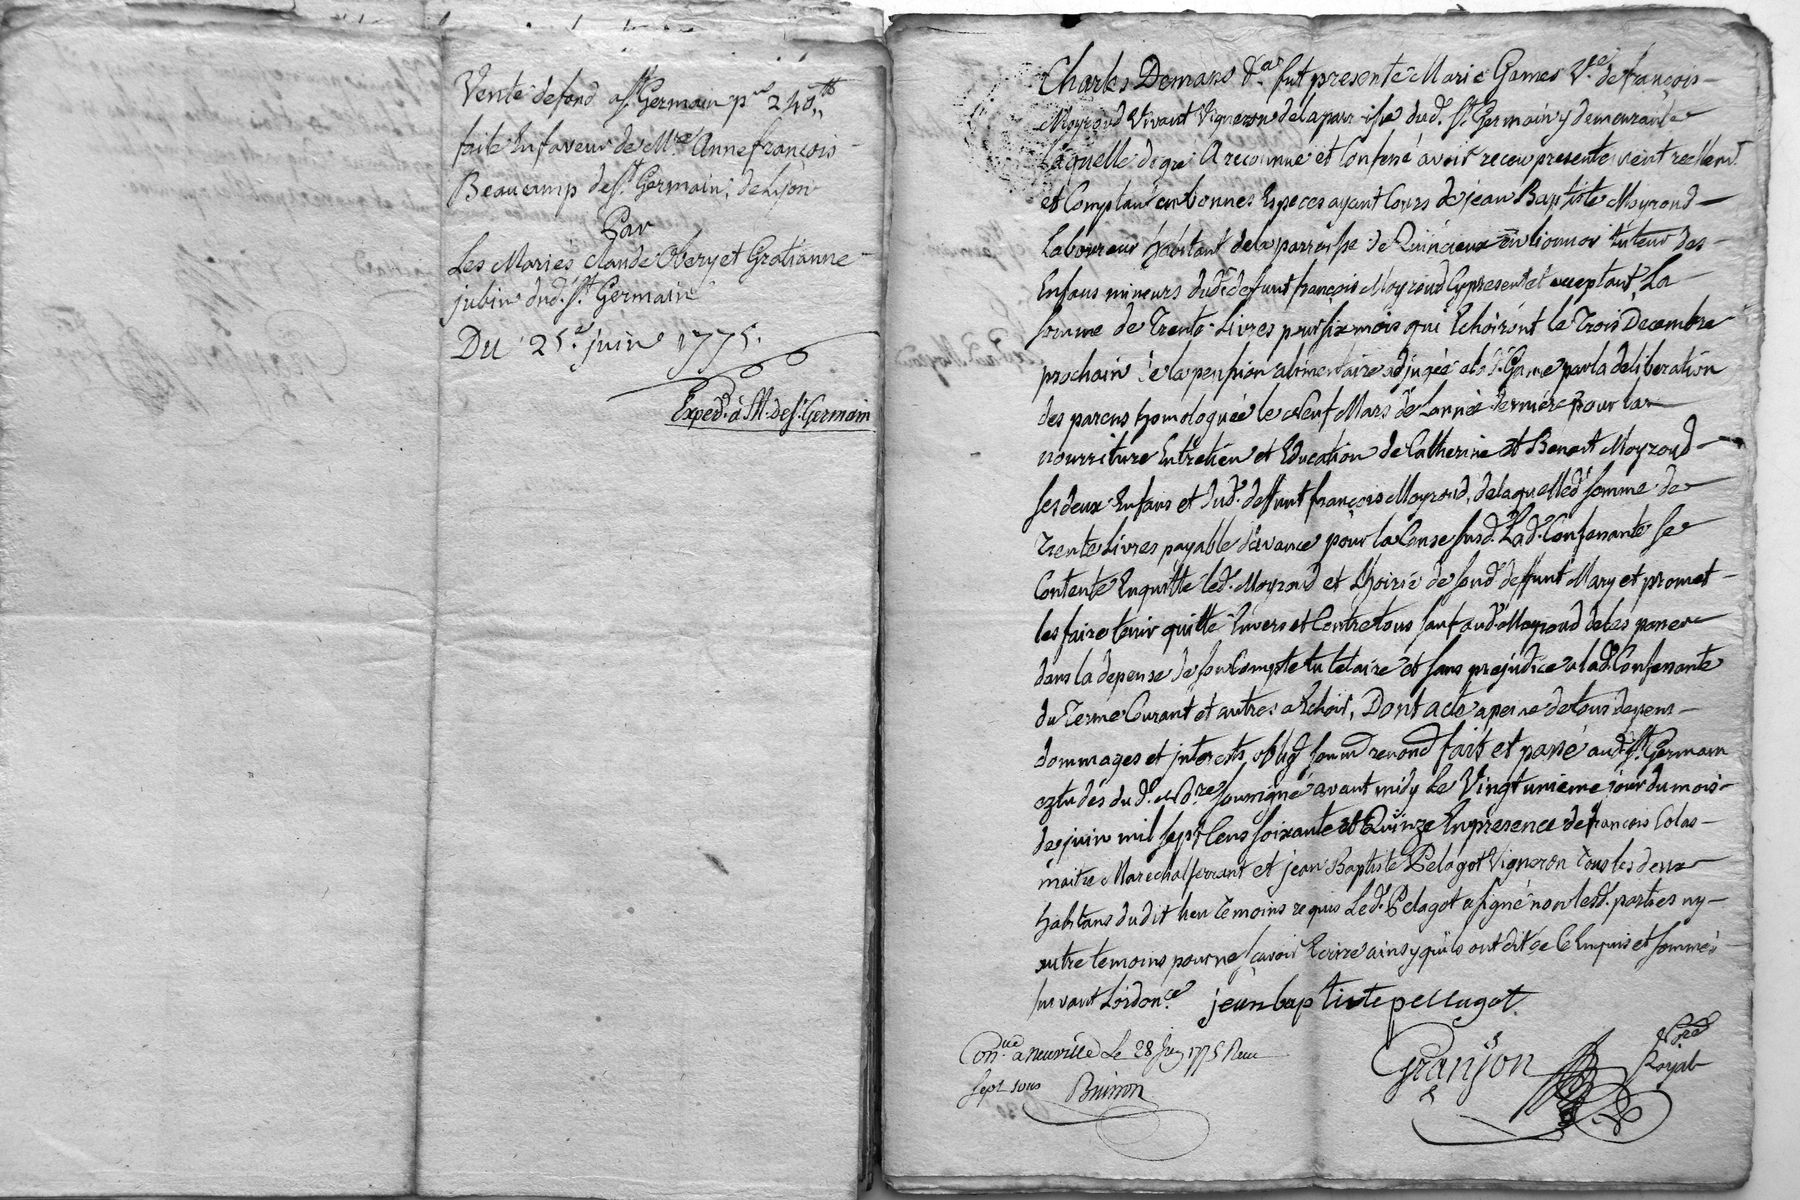 Vente de fond a St Germain pr 240 tt
faite En faveur de Mre Anne françois
Beaucamp de St Germain, de Lyon
Par
Les Mariés Claude Obery et Gratianne
jubin dud. St Germain
Du 25e juin 1775.
Exped. à M. de St Germain
Charles Demans &a fut presente Marie Games Ve. de françois
Moyroud Vivant Vigneron de la parroisse dud. St Germain y demeurante
Laquelle de gré A reconnu et Confessé avoir receu presentement reellemt.
et Comptant en bonnes Especes ayant Cours de jean Baptiste Moyroud
Laboureur habitant de la parroisse de Quincieux en lionnois tuteur des
Enfans mineurs dud. defunt françois Moyroud Cy present et acceptant La
somme de Trente Livres pour six mois qui Echoiront le Trois Decembre
prochain de la pension alimentaire adjugée a lad. Game par la deliberation
des parens homologuée le neuf Mars de Lannée derniere Pour la
nourriture Entretien et Education de Catherine et Benoit Moyroud
ses deux Enfans et dud. deffunt françois Moyroud, de laquelle d. somme de
Trente Livres payable d'avance pour la Cause susd. Lad. Confessante se
Contente En quitte led. Moyroud et Lhoirie de sond. deffunt Mary et promet
les faire tenir quitte Envers et Contre tous sauf aud. Moyroud de les passer
dans la depense de son Compte tutelaire et sans prejudice a lad. Confessante
du Terme Courant et autres a Echoir, Dont acte a peine de tous depens
dommages et interets oblig soum renond fait et passé aud. St Germain
etude du d. Nore soussigné avant midy Le Vingt unieme jour du mois
de juin mil sept Cens soixante et Quinze En presence de francois Colas
maitre Marechal ferrant et jean Baptiste Pelagot Vigneron tous les deux
habitans dudit lieu temoins requis Led. Pelagot a signé non lesd. parties ny
autre temoins pour ne sçavoir Ecrire ainsy qu'ils ont dit de Ce Enquis et sommés
suivant Lordonce. jean baptiste pellagot
Conlle a neuville Le 28 juin 1775 Reçu
sept sous Buisson
Granjon Nore Royal